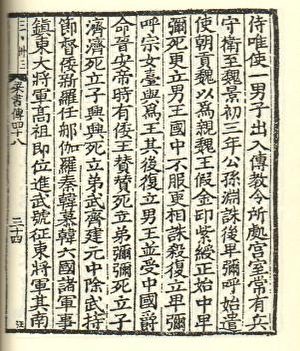 侍唯使一男子出入傳教令所處宮室常有兵
守衛至魏景初三年公孫淵誅後卑彌呼始遣
使朝貢魏以為親魏王假金印紫綬正始中卑
彌死更立男王國中不服更相誅殺復立卑彌
呼宗女臺與為王其後復立男王並受中國爵
命晉安帝時有倭王賛賛死立弟彌彌死立子
濟濟死立子興興死立弟武齊建元中除武持
節督倭新羅任那伽羅秦韓慕韓六國諸軍事
鎮東大將軍高祖即位進武號征東將軍其南
梁書傳四十八
三十四
汪